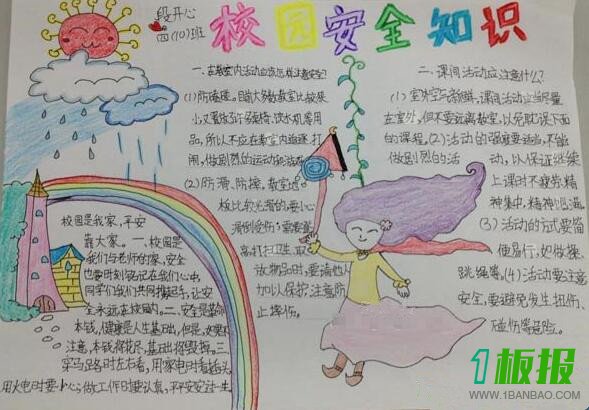 段开心
四(10)班
校园安全知识
一、在教室内活动应该怎样注意安全?
(1)防磕碰。目前大多数教室比较狭
小又置放了许多桌椅、饮水机等用
品,所以不应在教室内追逐、打
闹,做剧烈的运动和游戏
(2)防滑、防摔。教室地
板比较光滑的要小心
滑倒受伤;需要登
高打扫卫生、取
放物品时,要请他人
加以保护,注意防
止摔伤。
二、课间活动应注意什么?
(1)室外空气新鲜,课间活动应当尽量
在室外,但不要远离教室,以免耽误下面
的课程。(2)活动的强度要适当,不能
做剧烈的活动,以保证继续
上课时不疲劳,精
神集中,精神饱满
(3)活动的方式要简
便易行,如做操、
跳绳等。(4)活动要注意
安全,要避免发生扭伤、
碰伤等危险。
校园是我家,平安
靠大家。一、校园是
我们与老师的家,安全
也要时刻铭记在我们心中,
同学们我们共同携起手,让安
全永远在校园内。二、安全是
本钱,健康是人生基础,但是,如果不
注意,本钱将花尽,基础将毁掉。三、
穿马路时左右看,用家电时看插头
用火电时要小心,做工作时要认真,平平安安过一生
1板报
WWW.1BANBAO.COM